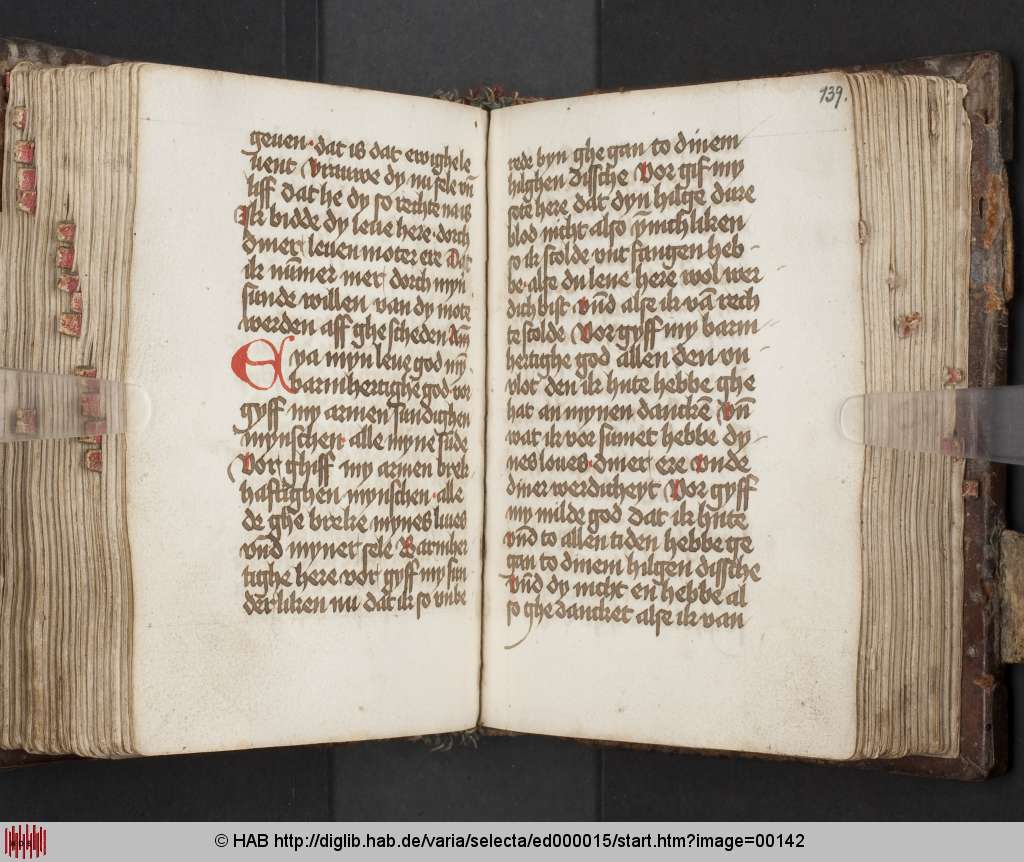 geuen · dat is dat ewighe le
uent Vrauwe dy nu sele vñ
liff dat he dy so rechte na is
Ik bidde dy leue here · dorch
diner leuen moter ere Dat
ik nũmer mer dorch myñ
sunde willen van dy mote
werden aff ghe scheden Am̃
Eya myn leue god myñ
barmhertighe god vor
gyff my armen sundighen
mynschen · alle myne sũde
Vor ghiff my armen brek
hafftighen mynschen · alle
de ghe breke mynes liues
vñd myner sele Barmher
tighe here vor gyff my sun
derliken nu dat ik so vnbe
139.
rede byn ghe gan to dinem
hilghen dissche Vor gif my
sote here dat dyn hilge dure
blod nicht also ỹnichliken
so ik scolde vnt fangen heb-
be · alse du leue here wol wer
dich bist vñd alse ik vã rech
te scolde Vor gyff my barm
hertighe god allen den vn
vlot den ik hute hebbe ghe
hat an mynen danckẽ Vñ
wat ik vor sumet hebbe dy-
nes loues · diner ere vnde
diner werdicheyt Vor gyff
my milde god dat ik hute
vñd to allen tiden hebbe ge
gan to dinem hilgen dissche
vñd dy nicht en hebbe al
so ghe dancket alse ik van
© HAB http://diglib.hab.de/varia/selecta/ed000015/start.htm?image=00142